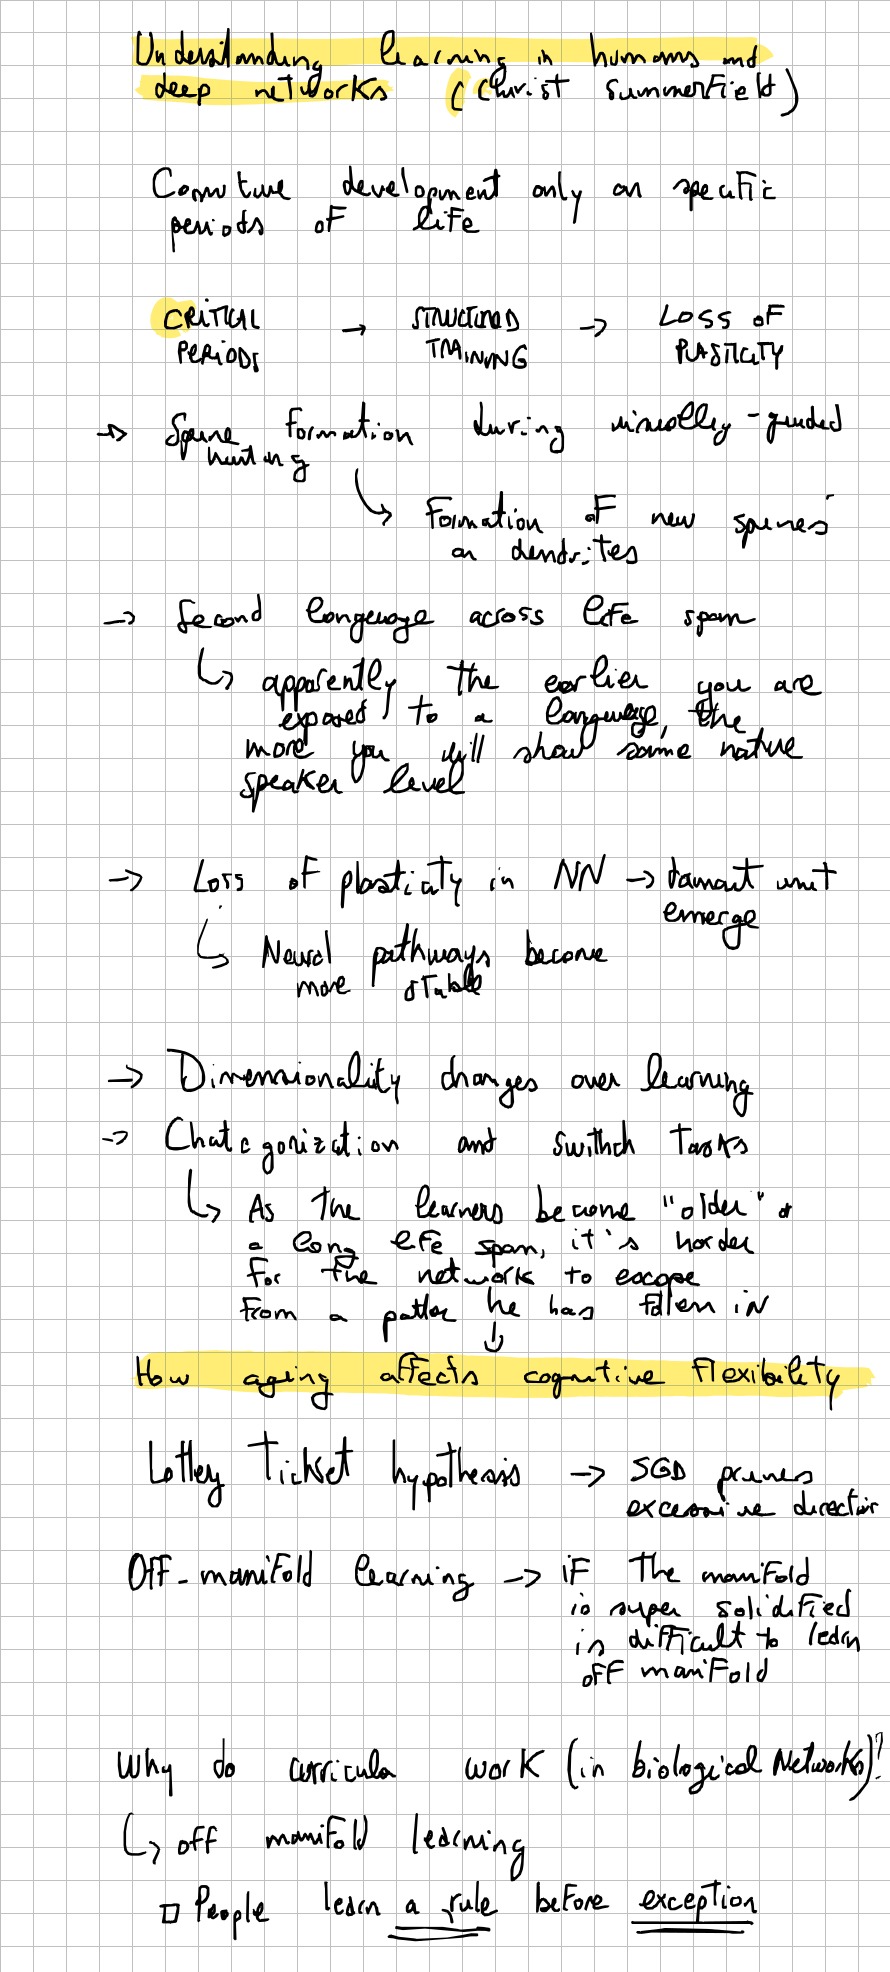 Understanding learning in humans and
deep networks (Christ Summerfield)
development only on specific
periods of life
CRITICAL → STRUCTURED → LOSS OF
PERIODS TRAINING PLASTICITY
→ Spine formation during visually-guided
hunting
↳ Formation of new spines
on dendrites
→ Second language across life span
↳ apparently the earlier you are
exposed to a language, the
more you will show same native
speaker level
→ Loss of plasticity in NN → unit
emerge
↳ Neural pathways become
more stable
→ Dimensionality changes over learning
→ Chategorization and swithch tasks
↳ As the learners become "older"
a long life span, it's harder
for the network to escape
from a he has fallen in
↓
How aging affects cognitive flexibility
Lottery Ticket hypothesis → SGD prunes
excessive direction
Off-manifold learning → if the manifold
is super solidified
is difficult to learn
off manifold
Why do curricula work (in biological Networks)?
↳ off manifold learning
□ People learn a rule before exception